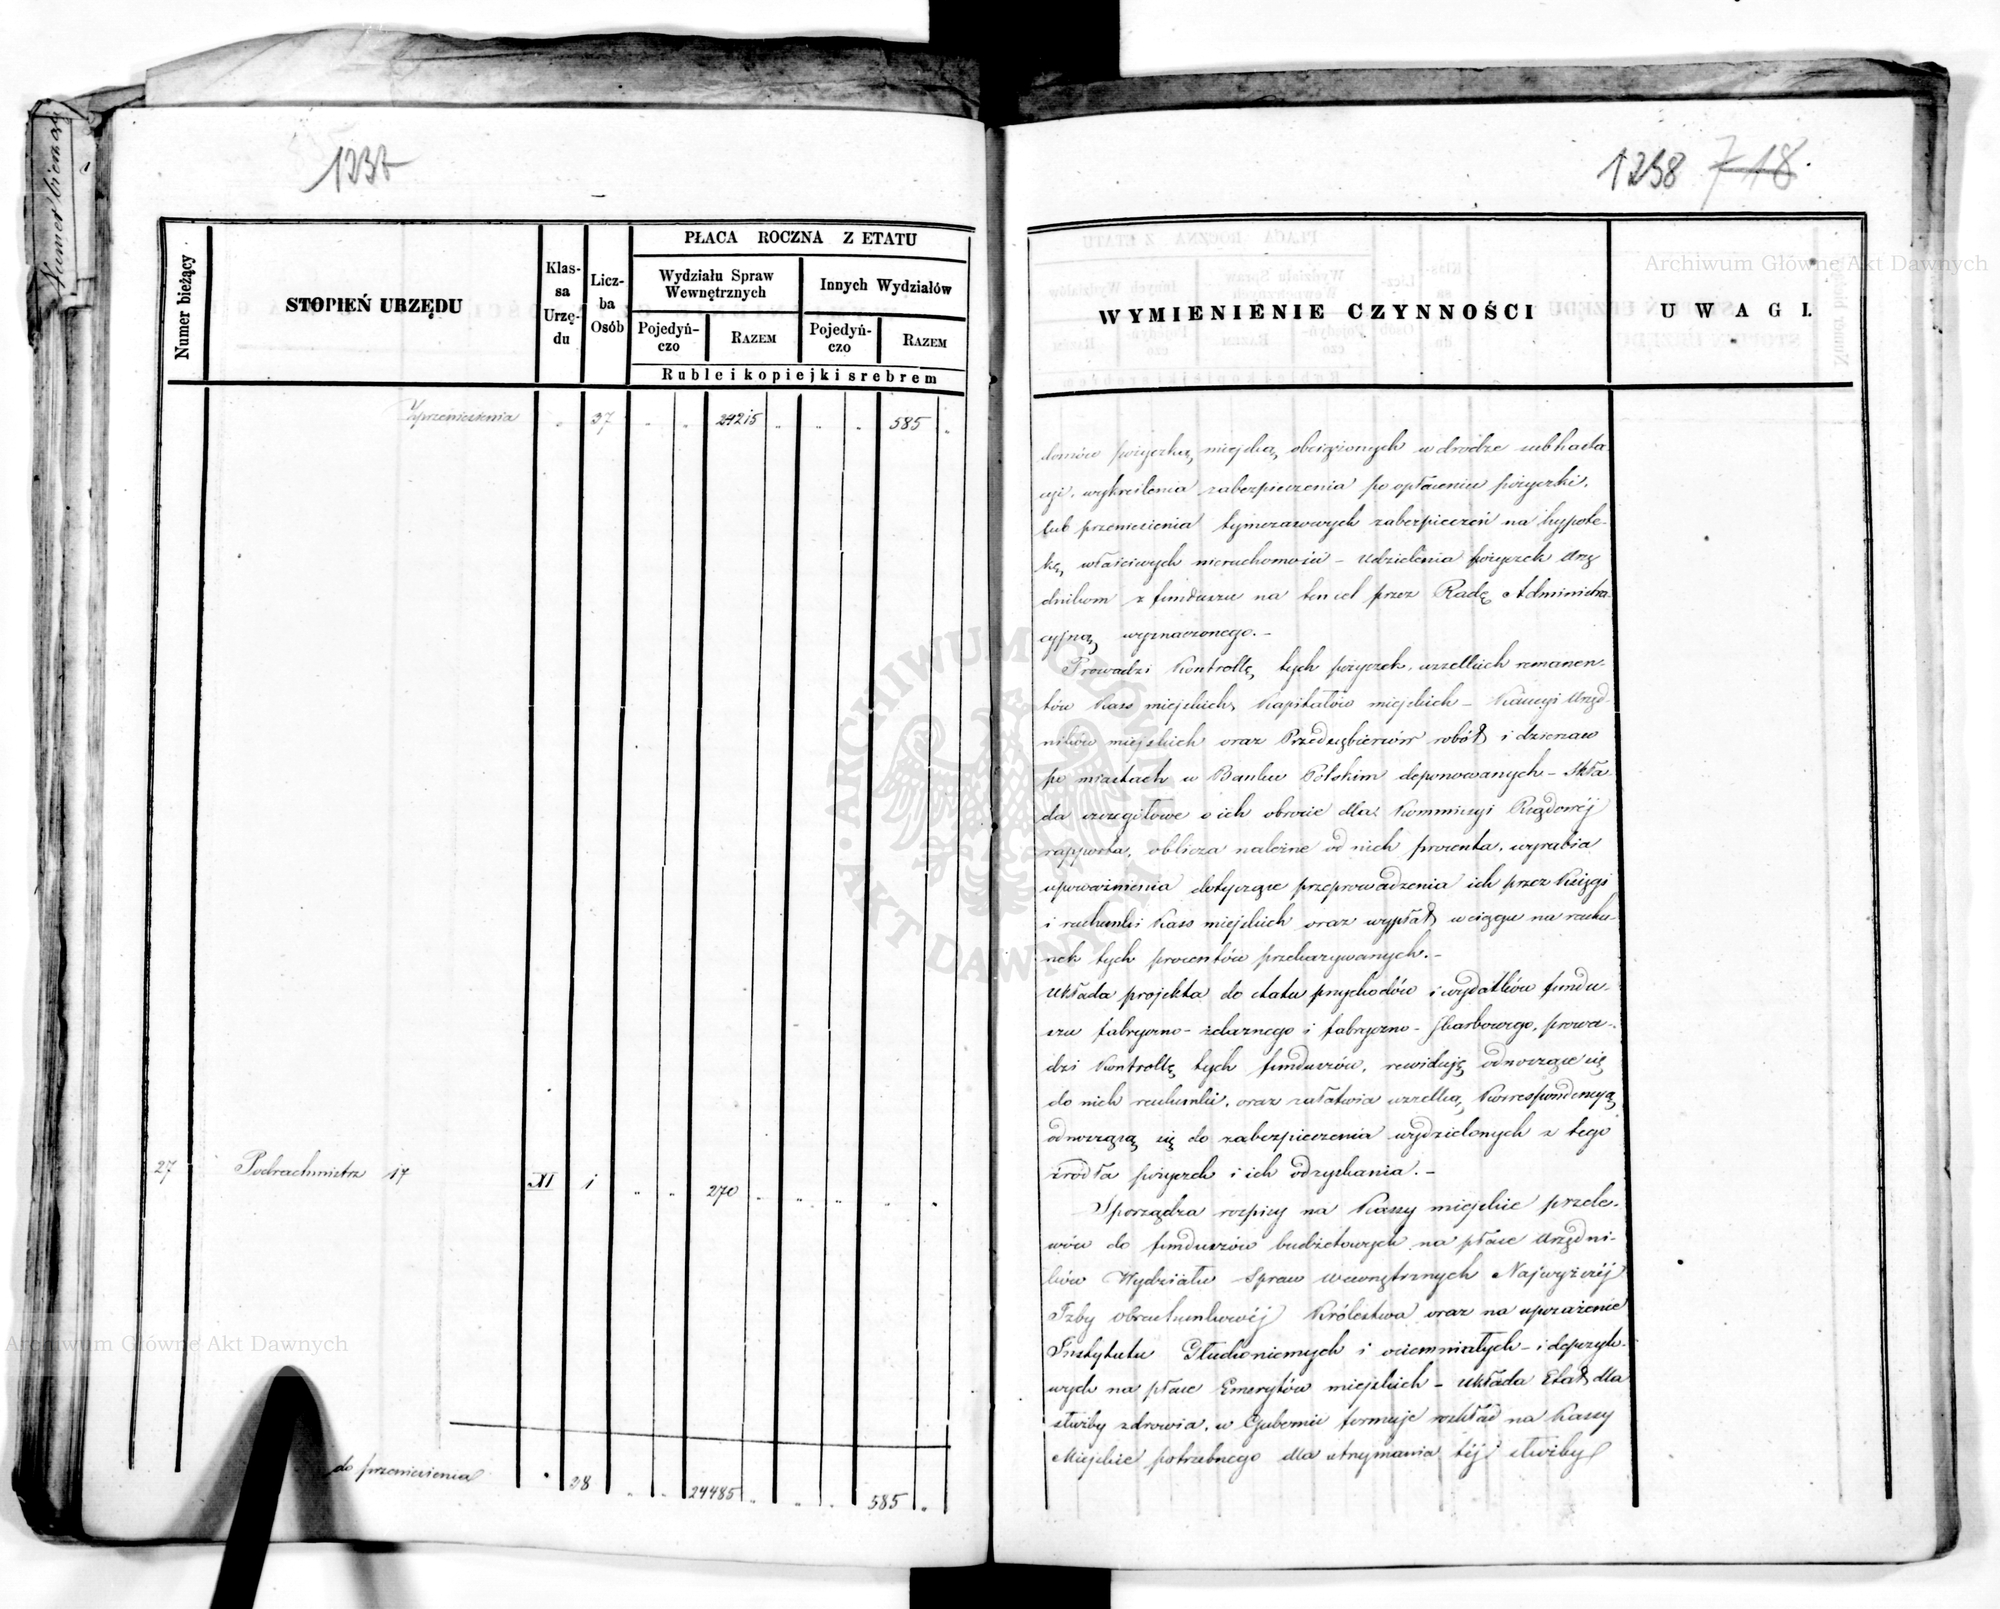 1237
Numer bieżący
STOPIEŃ URZĘDU
Klas-
sa
Urzę-
du
Licz-
ba
Osób
PŁACA ROCZNA Z ETATU
Wydziału Spraw
Wewnętrznych
Innych Wydziałów
Pojedyń-
czo
RAZEM
Pojedyń-
czo
RAZEM
Ruble i kopiejki srebrem
Z przeniesienia " 37 " " 24215 " " " 585 "
27 Podrachmistrz 17 XI 1 " " 270 " " " " "
do przeniesienia " 38 " " 24485 " " " 585 "
1238 718
WYMIENIENIE CZYNNOŚCI
UWAGI.
domów pożyczką miejską obciążonych w drodze subhasta
cyi, wykreślenia zabezpieczenia po opłaceniu pożyczki,
lub przeniesienia tymczasowych zabezpieczeń na hypote-
kę właściwych nieruchomości – udzielenia pożyczek Urzę
dnikom z funduszu na ten cel przez Radę Administra
cyjną wyznaczonego. –
Prowadzi Kontrollę tych pożyczek, wszelkich remanen-
tów Kass miejskich, Kapitałów miejskich – Kaucyi Urzęd-
ników miejskich oraz Przedsiębierców robót i dzierzaw
po miastach w Banku Polskim deponowanych – Skła
da szczegółowe o ich obrocie dla Kommissyi Rządowéj
rapporta, oblicza należne od nich procenta, wyrabia
upoważnienia dotyczące przeprowadzenia ich przez Księgi
i rachunki Kass miejskich oraz wypłat w ciągu na rachu-
nek tych procentów przekazywanych. –
Układa projekta do etatu przychodów i wydatków fundu-
szu fabryczno-żelaznego i fabryczno-Skarbowego, prowa-
dzi Kontrollę tych funduszów, rewiduję odnoszące się
do nich rachunki, oraz załatwia wszelką Korrespondencyą
odnoszącą się do zabezpieczenia wydzielonych z tego
źródła pożyczek i ich odzyskania. –
Sporządza rozpisy na Kassy miejskie przele-
wów do funduszów budżetowych na płace Urzędni-
ków Wydziału Spraw Wewnętrznych Najwyższéj
Izby obrachunkowéj Królestwa oraz na uposażenie
Instytutu Głuchoniemych i ociemniałych –
wych na płace Emerytów miejskich – układa Etat dla
służby zdrowia, w Gubernii formuje rozkład na Kassy
Miejskie potrzebnego dla utrzymania téj służby
Numer bieżący
Archiwum Główne Akt Dawnych
Archiwum Główne Akt Dawnych
ARCHIWUM GŁÓWNE AKT DAWNYCH